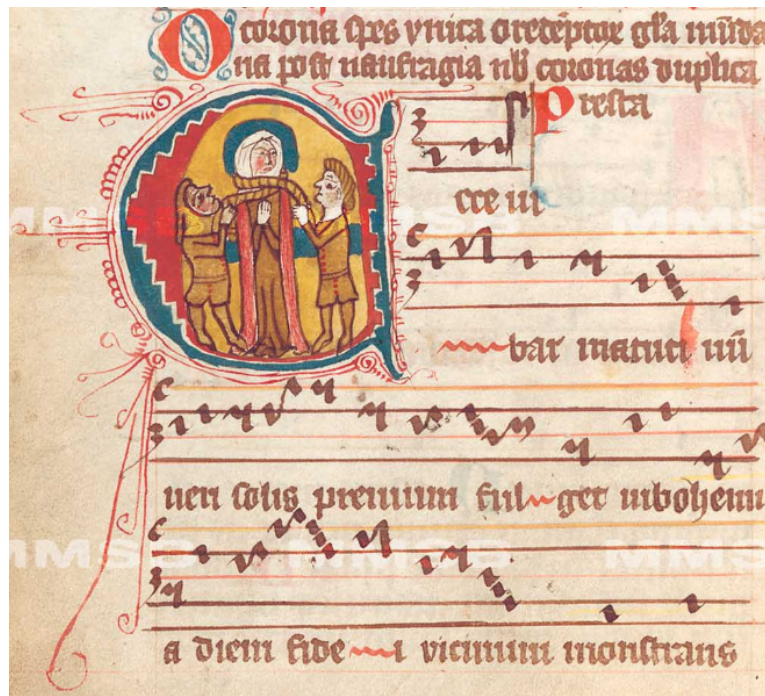 O corona spes vnica oredēptor gl̄a mūda
na post naufragia nb̄ coronas duplica
Presta
Ecce iu
bar matuti nū
ueri solis preuium ful get inbohemi
a diem fide i vicinum monstrans
MMSB MMSB MMSB
MMSB MMSB MMSB